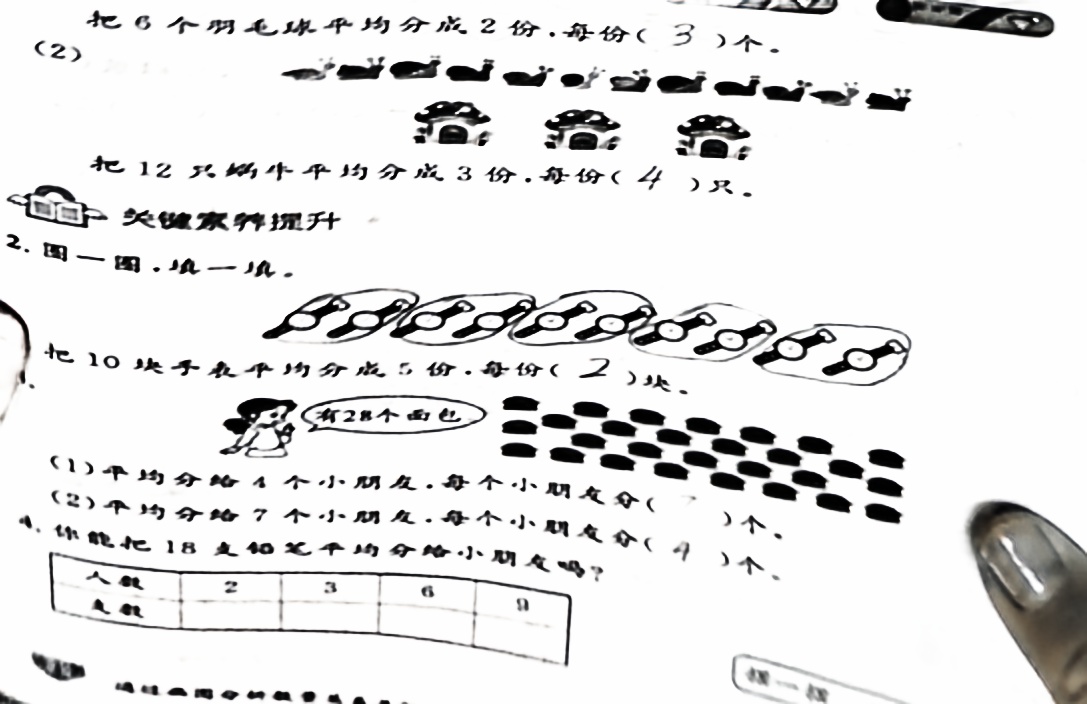 把6个羽毛球平均分成2份,每份( 3 )个。
(2)
把12只蜗牛平均分成3份,每份( 4 )只。
关键素养提升
2. 圈一圈,填一填。
把10块手表平均分成5份,每份( 2 )块。
有28个面包
(1)平均分给4个小朋友,每个小朋友分( )个。
(2)平均分给7个小朋友,每个小朋友分( 4 )个。
4. 你能把18支铅笔平均分给小朋友吗?
人数 2 3 6 9
支数